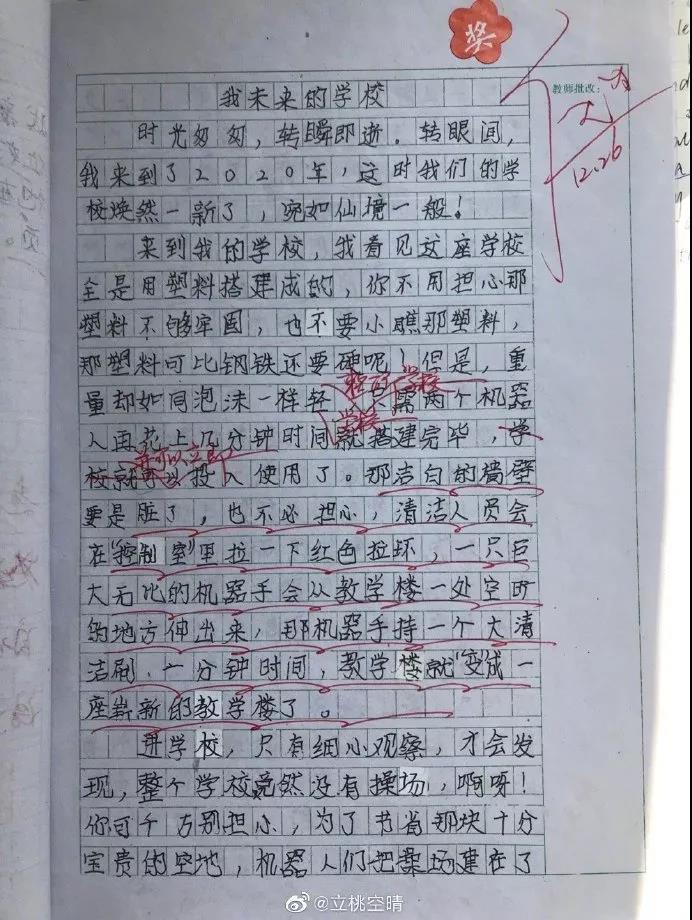 奖
教师批改：
大
12.26
我未来的学校
时光匆匆，转瞬即逝．转眼间，
我来到了2020年，这时我们的学
校焕然一新了，宛如仙境一般！
来到我的学校，我看见这座学校
全是用塑料搭建成的，你不用担心那
塑料不够牢固，也不要小瞧那塑料，
那塑料可比钢铁还要硬呢！但是，重
量却如同泡沫一样轻 需两个机器
人再花上几分钟时间就搭建完毕，学
校就可以投入使用了。那洁白的墙壁
要是脏了，也不必担心，清洁人员会
在“控制室”里拉一下红色拉环，一只巨
大无比的机器手会从教学楼一处空旷
的地方伸出来，那机器手持一个大清
洁刷．一分钟时间，教学楼就“变”成一
座崭新的教学楼了。
进学校，只有细心观察，才会发
现，整个学校竟然没有操场，啊呀！
你可千万别担心，为了节省那块十分
宝贵的空地，机器人们把操场建在了
@立桃空晴